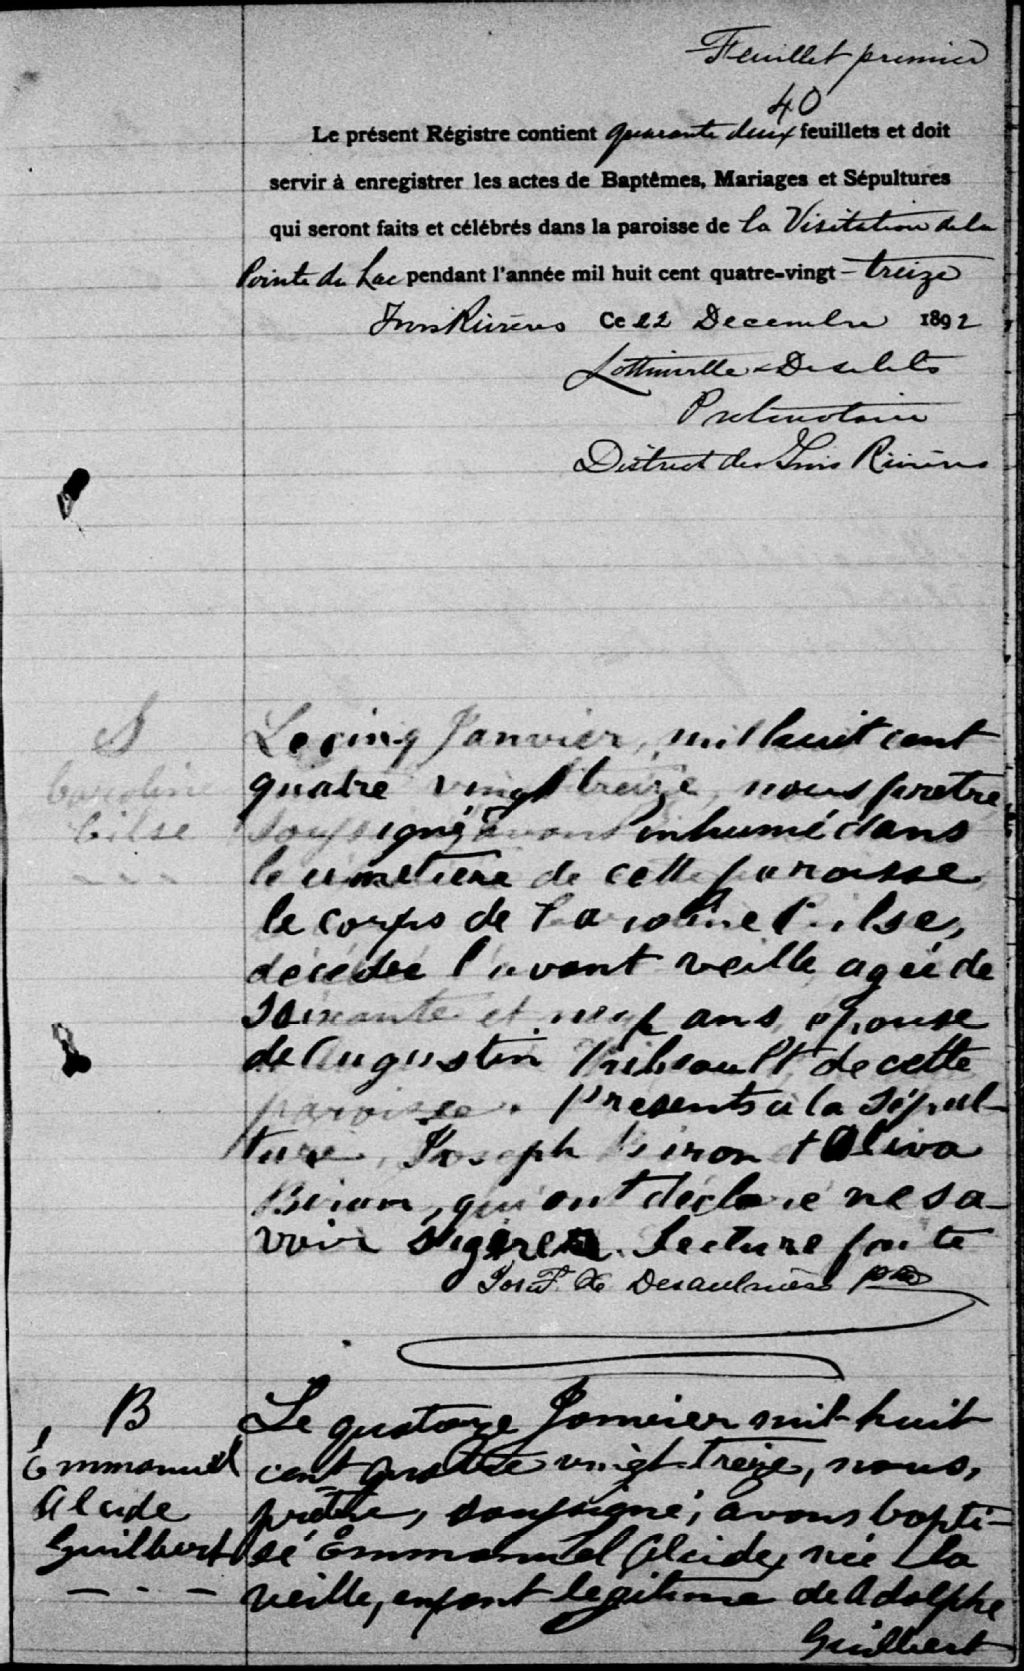 Feuillet premier
40
Le présent Régistre contient quarante deux feuillets et doit
servir à enregistrer les actes de Baptêmes, Mariages et Sépultures
qui seront faits et célébrés dans la paroisse de la Visitation de la
Pointe du Lac pendant l'année mil huit cent quatre-vingt-treize
Trois Rivières Ce 22 Decembre 1892
Lottinville & Desilets
Protonotaire
District des Trois Rivières
S
Caroline
Bilse
Le cinq Janvier, mil huit cent
quatre vingt treize, nous pretre
soussigné avons inhumé dans
le cimetiere de cette paroisse
le corps de Caroline Bilse,
décédée l'avant veille, agée de
soixante et neuf ans, épouse
de Augustin Thibeault de cette
paroisse. Présents à la sépul-
ture, Joseph Biron et Oliva
Biron, qui ont déclaré ne sa-
voir signer. Lecture faite
Jos. F. X. Desaulniers ptre
B
Emmanuel
Alcide
Guilbert
Le quatorze Janvier mil-huit
cent quatre vingt-treize, nous,
prêtre, soussigné, avons bapti-
sé Emmanuel Alcide, née la
veille, enfant legitime de Adolphe
Guilbert